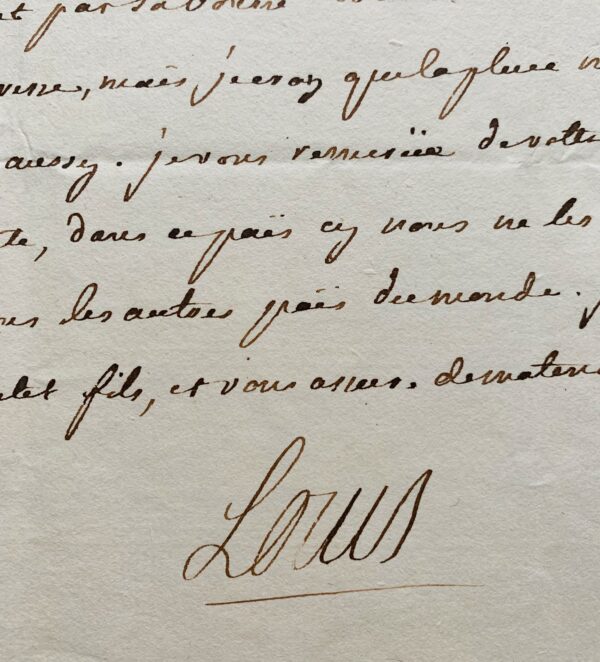 et par la bonne
mais je croy que la place n
aussy. je vous remercie de votre
te, dans ce païs cy nous ne les
les autres païs du monde.
fils, et vous assure. de ma ten
Louis